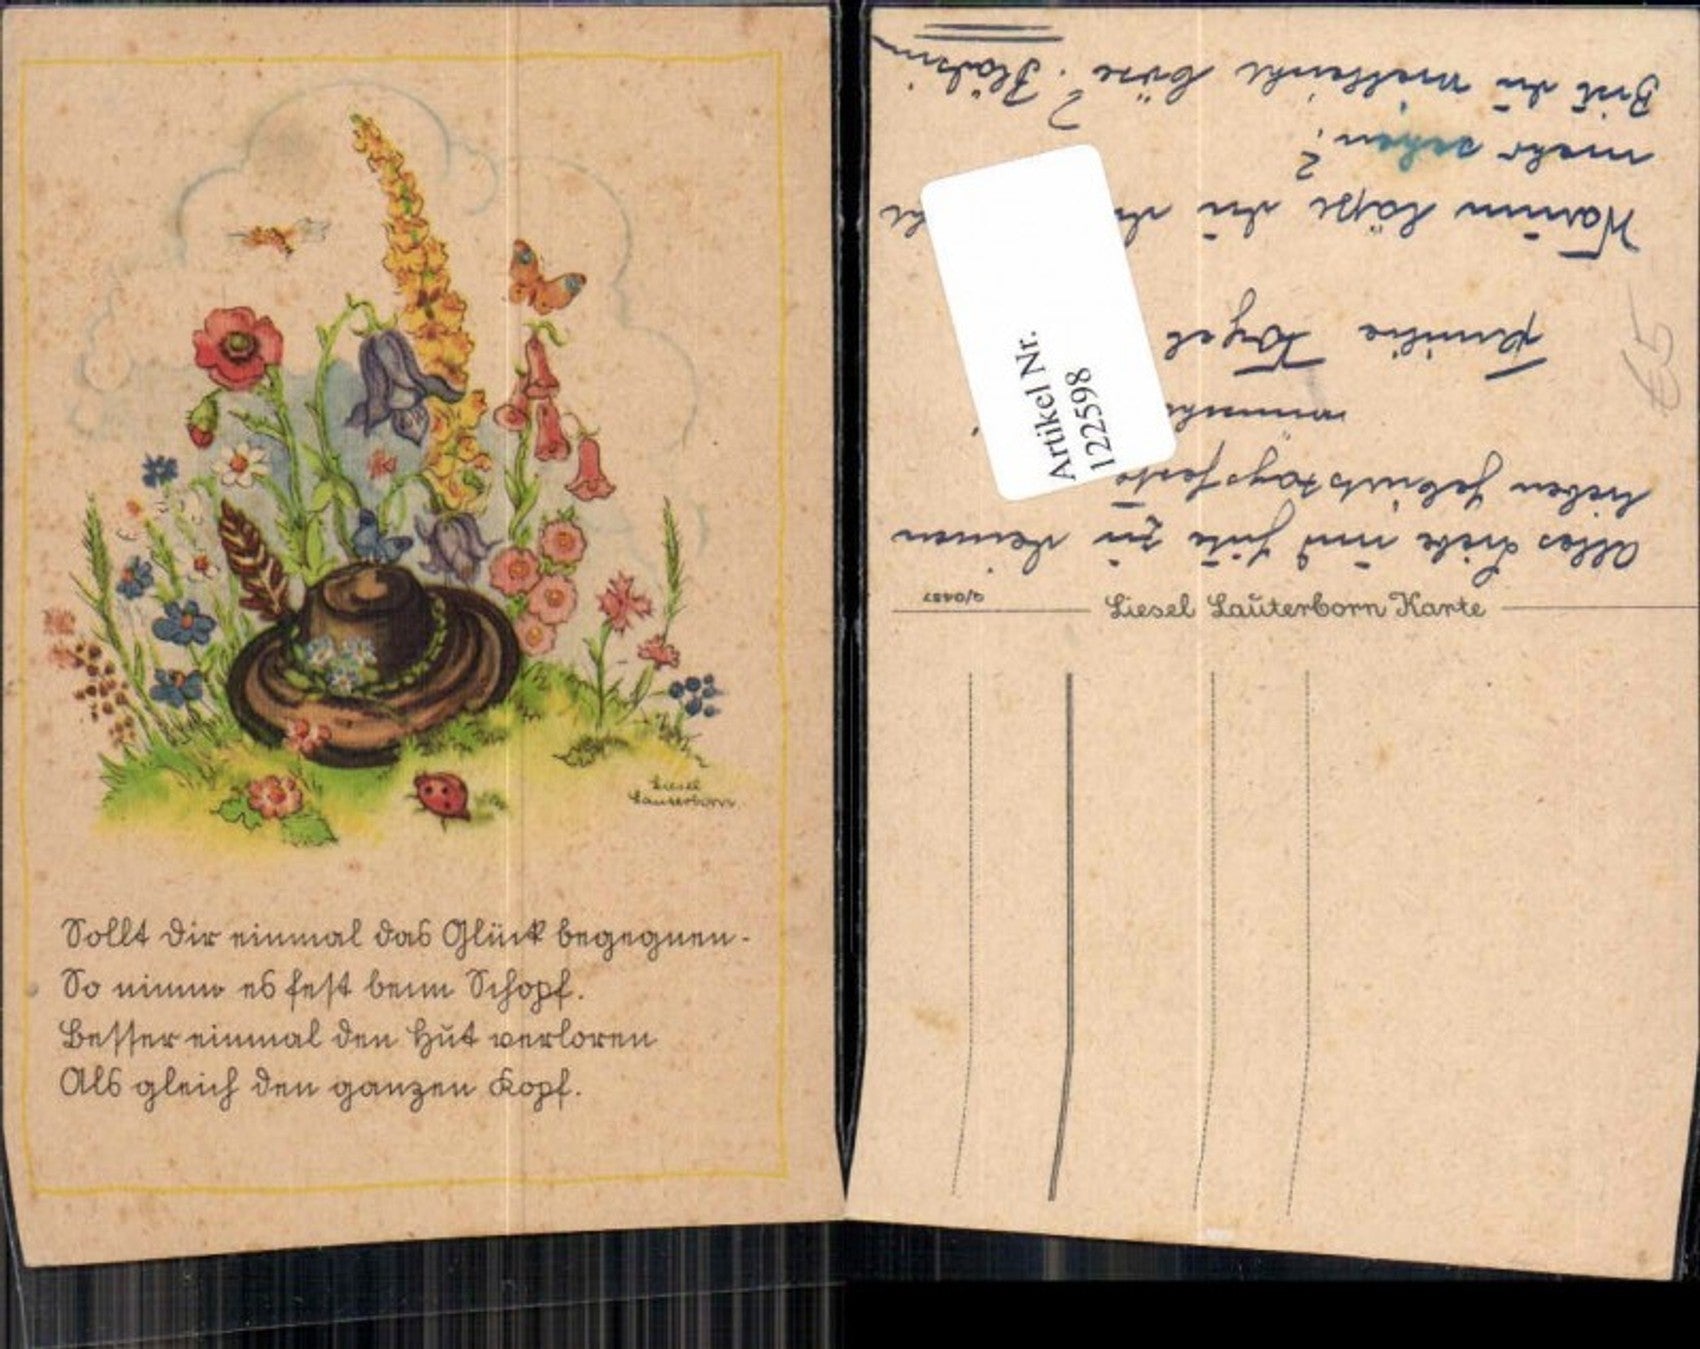 Liesel
Lauterborn.
Sollt dir einmal das Glück begegnen-
So nimm es fest beim Schopf.
Besser einmal den Hut verloren
Als gleich den ganzen Kopf.
Alles Liebe und Gute zu deinen
lieben Geburtstagsfeste
wünscht
Familie Vogel
Warum läßt du di
mehr sehen?
Bist du vielleicht böse?
Artikel Nr.
122598
Liesel Lauterborn Karte
€5